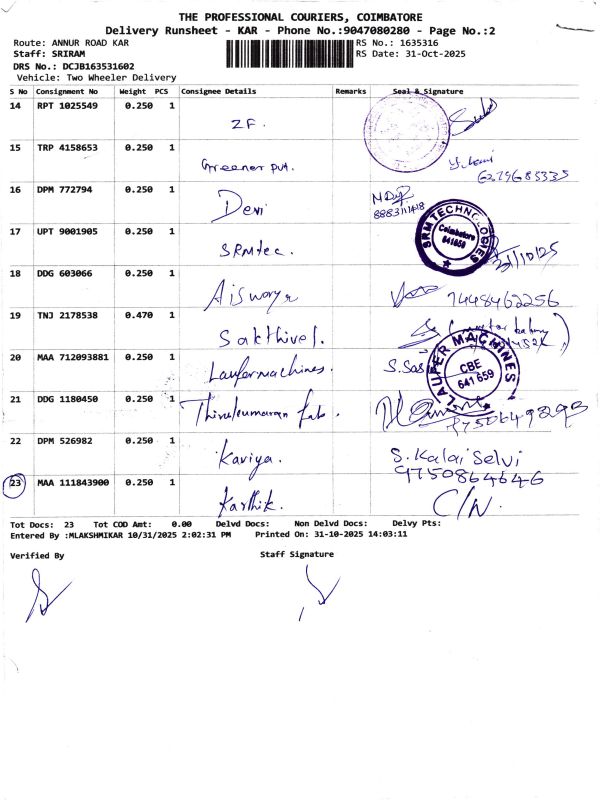 THE PROFESSIONAL COURIERS, COIMBATORE
Delivery Runsheet - KAR - Phone No.:9047080280 - Page No.:2
Route: ANNUR ROAD KAR RS No.: 1635316
Staff: SRIRAM RS Date: 31-Oct-2025
DRS No.: DCJB163531602
Vehicle: Two Wheeler Delivery
S No Consignment No Weight PCS Consignee Details Remarks Seal & Signature
14 RPT 1025549 0.250 1
ZF.
15 TRP 4158653 0.250 1
Greener pvt.
16 DPM 772794 0.250 1
Devi
8883111418
17 UPT 9001905 0.250 1
SRMtec.
SRM TECHNOLOGIES
Coimbatore
641659
31/10/25
18 DDG 603066 0.250 1
Aiswarya
7448462256
19 TNJ 2178538 0.470 1
Sakthivel.
20 MAA 712093881 0.250 1
Laufermachines.
LAUFER MACHINES
CBE
641 659
21 DDG 1180450 0.250 1
Thirukumaran fab.
22 DPM 526982 0.250 1
Kaviya.
S. Kalai Selvi
9750864646
23 MAA 111843900 0.250 1
Karthik.
C/N.
Tot Docs: 23 Tot COD Amt: 0.00 Delvd Docs: Non Delvd Docs: Delvy Pts:
Entered By :MLAKSHMIKAR 10/31/2025 2:02:31 PM Printed On: 31-10-2025 14:03:11
Verified By Staff Signature